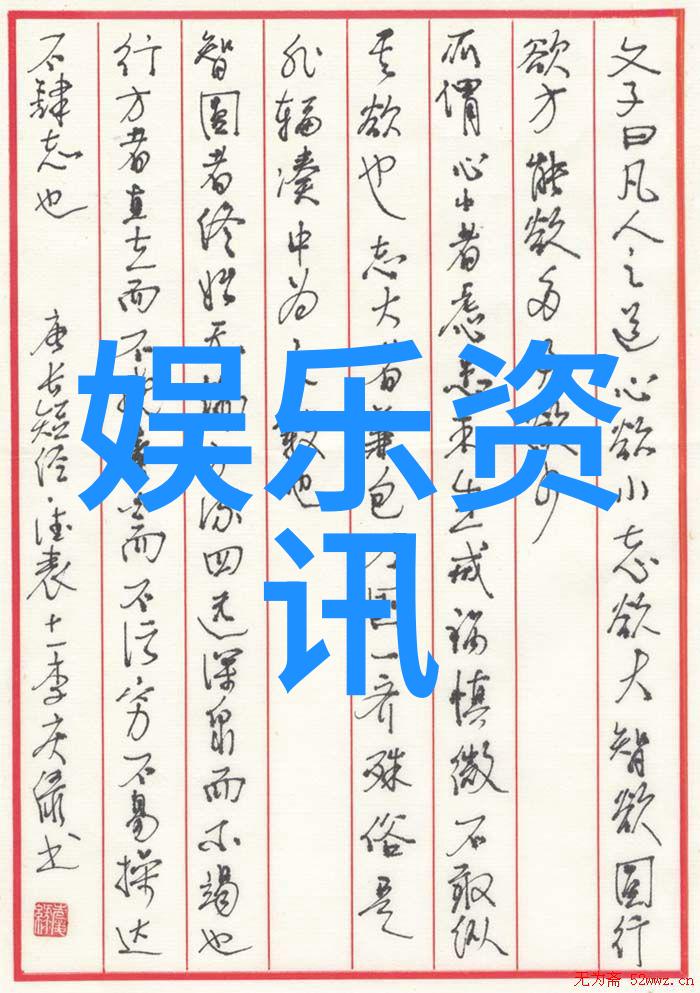 文子曰凡人之道心欲小志欲大智欲圆行
欲方能欲多事欲少
所谓心小者虑患未生戒祸慎微不敢纵
其欲也志大者兼包万国一齐殊俗是
非辐凑中为之毂也
智圆者终始无端方流四远深泉而不竭也
行方者直立而不挠素白而不污穷不易操达
不肆志也
唐长短经·德表十一季庆绿书
娱乐资
讯
无为斋 52wwz.cn